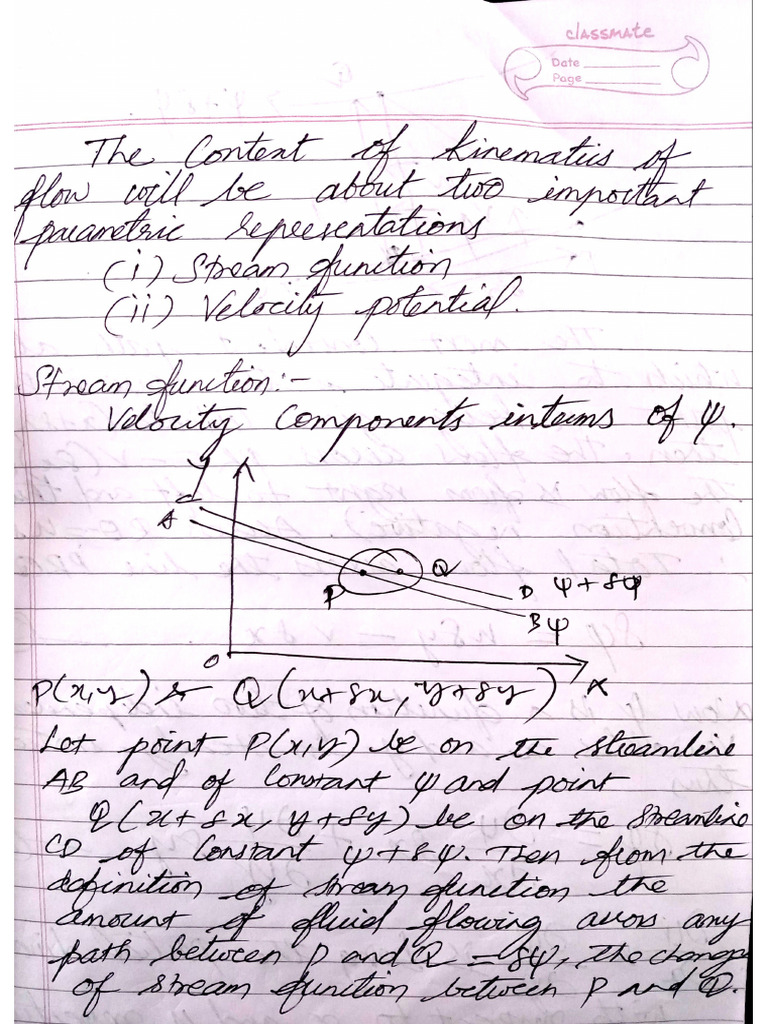 classmate
Date
Page
The Content of kinematics of
flow will be about two important
parametric representations
(i) Stream function
(ii) Velocity potential.
Stream function:-
Velocity Components interms of ψ.
y
C
A
P
Q
D ψ+δψ
B ψ
O
x
P(x,y) & Q(x+δx, y+δy)
Let point P(x,y) be on the streamline
AB and of Constant ψ and point
Q(x+δx, y+δy) be on the streamline
CD of Constant ψ+δψ. Then from the
definition of stream function the
amount of fluid flowing across any
path between P and Q = δψ, the change
of stream function between P and Q.